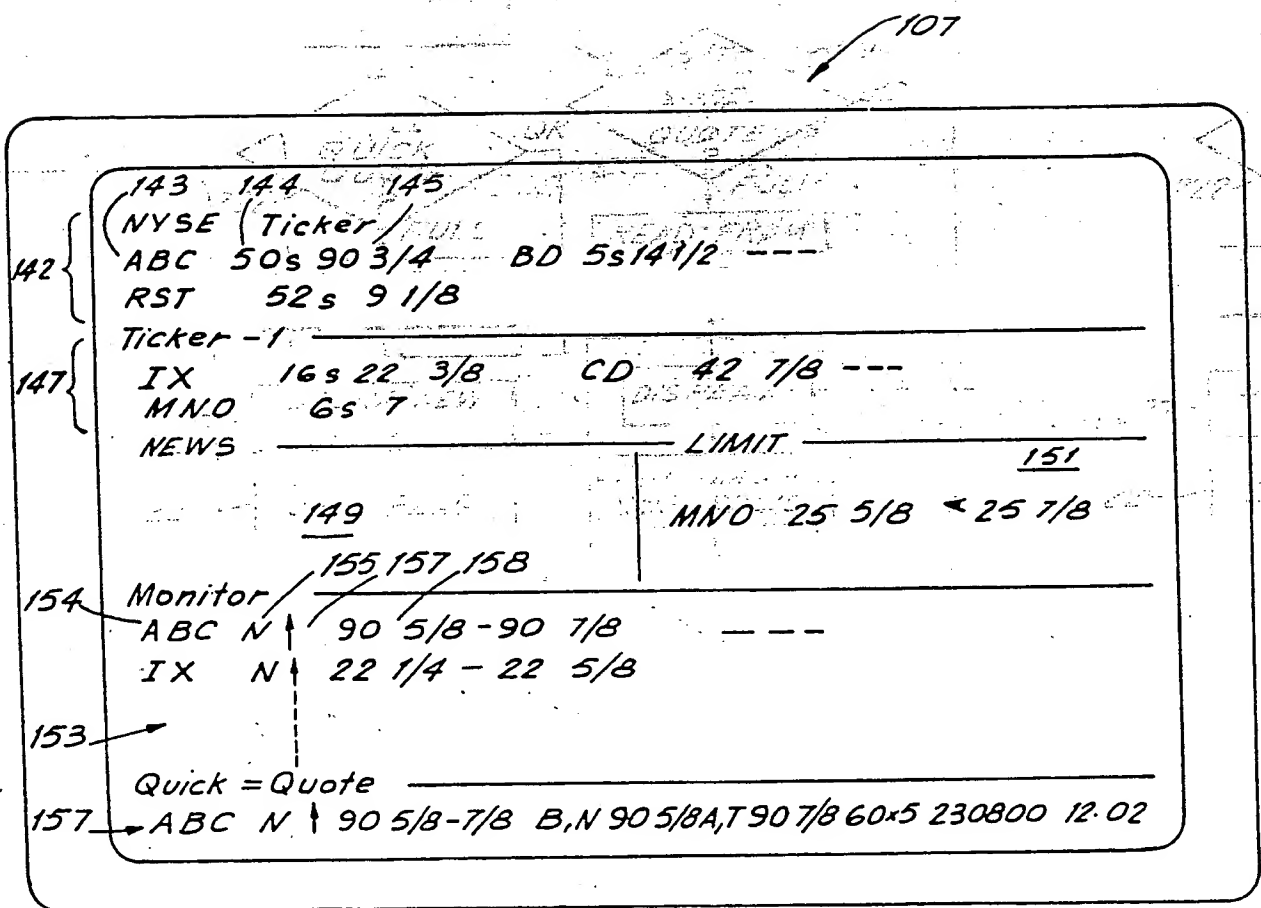 107
143 144 145
NYSE Ticker
142
ABC 50s 90 3/4 BD 5s 14 1/2 ---
RST 52s 9 1/8
Ticker -1
147
IX 16s 22 3/8 CD 42 7/8 ---
MNO 6s 7
NEWS LIMIT
151
149
MNO 25 5/8 < 25 7/8
155 157 158
154
Monitor
ABC N ↑ 90 5/8 - 90 7/8 ---
IX N ↑ 22 1/4 - 22 5/8
153
Quick = Quote
157 ABC N ↑ 90 5/8-7/8 B,N 90 5/8A,T 90 7/8 60x5 230800 12.02
QUICK
OR
QUOTE
FULL
FULL